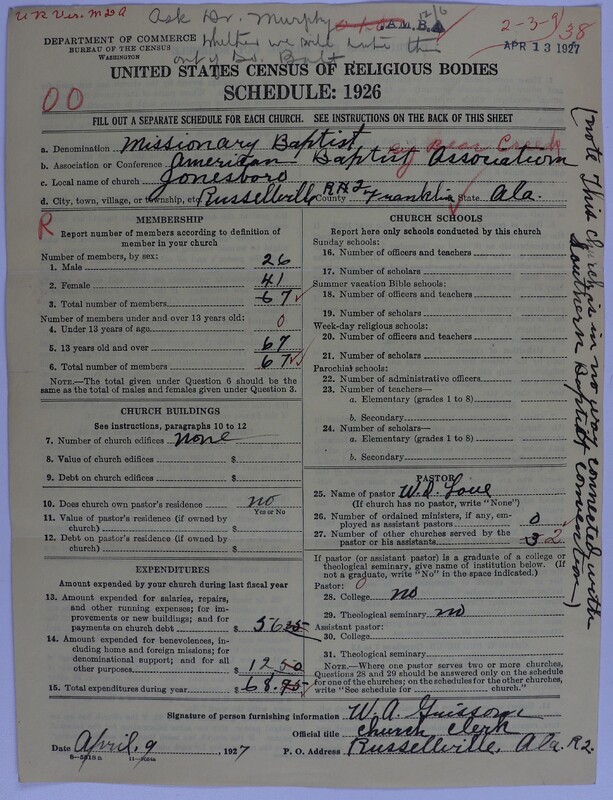 U R Ver. M D A
Ask Dr. Murphy
A.M.B.A
12/6
2-3-9
38
DEPARTMENT OF COMMERCE
BUREAU OF THE CENSUS
WASHINGTON
whether we will write this
out of So. Bapt
APR 13 1927
UNITED STATES CENSUS OF RELIGIOUS BODIES
SCHEDULE: 1926
OO
FILL OUT A SEPARATE SCHEDULE FOR EACH CHURCH. SEE INSTRUCTIONS ON THE BACK OF THIS SHEET
a. Denomination Missionary Baptist
Big Bear Creek
b. Association or Conference American Baptist Association
c. Local name of church Jonesboro
d. City, town, village, or township, etc. Russellville R#2 County Franklin State Ala.
(note This church is in no way connected with
Southern Baptist convention)
R
MEMBERSHIP
Report number of members according to definition of
member in your church
Number of members, by sex:
1. Male 26
2. Female 41
3. Total number of members 67
Number of members under and over 13 years old:
4. Under 13 years of age 0
5. 13 years old and over 67
6. Total number of members 67
NOTE.—The total given under Question 6 should be the
same as the total of males and females given under Question 3.
CHURCH BUILDINGS
See instructions, paragraphs 10 to 12
7. Number of church edifices none
8. Value of church edifices $
9. Debt on church edifices $
10. Does church own pastor's residence no
Yes or No
11. Value of pastor's residence (if owned by
church) $
12. Debt on pastor's residence (if owned by
church) $
EXPENDITURES
Amount expended by your church during last fiscal year
13. Amount expended for salaries, repairs,
and other running expenses; for im-
provements or new buildings; and for
payments on church debt $ 56
14. Amount expended for benevolences, in-
cluding home and foreign missions; for
denominational support; and for all
other purposes $ 12 50
15. Total expenditures during year $ 68.
CHURCH SCHOOLS
Report here only schools conducted by this church
Sunday schools:
16. Number of officers and teachers
17. Number of scholars
Summer vacation Bible schools:
18. Number of officers and teachers
19. Number of scholars
Week-day religious schools:
20. Number of officers and teachers
21. Number of scholars
Parochial schools:
22. Number of administrative officers
23. Number of teachers—
a. Elementary (grades 1 to 8)
b. Secondary
24. Number of scholars—
a. Elementary (grades 1 to 8)
b. Secondary
PASTOR
25. Name of pastor W.A. Love
(If church has no pastor, write "None")
26. Number of ordained ministers, if any, em-
ployed as assistant pastors 0
27. Number of other churches served by the
pastor or his assistants 3 2
If pastor (or assistant pastor) is a graduate of a college or
theological seminary, give name of institution below. (If
not a graduate, write "No" in the space indicated.)
Pastor:
28. College no
29. Theological seminary no
Assistant pastor:
30. College
31. Theological seminary
NOTE.—Where one pastor serves two or more churches,
Questions 28 and 29 should be answered only on the schedule
for one of the churches; on the schedules for the other churches,
write "See schedule for church."
Signature of person furnishing information W. A. Grissom
Official title Church Clerk
Date April, 9, 1927 P. O. Address Russellville, Ala. R2.
8—5518a 11—9084a